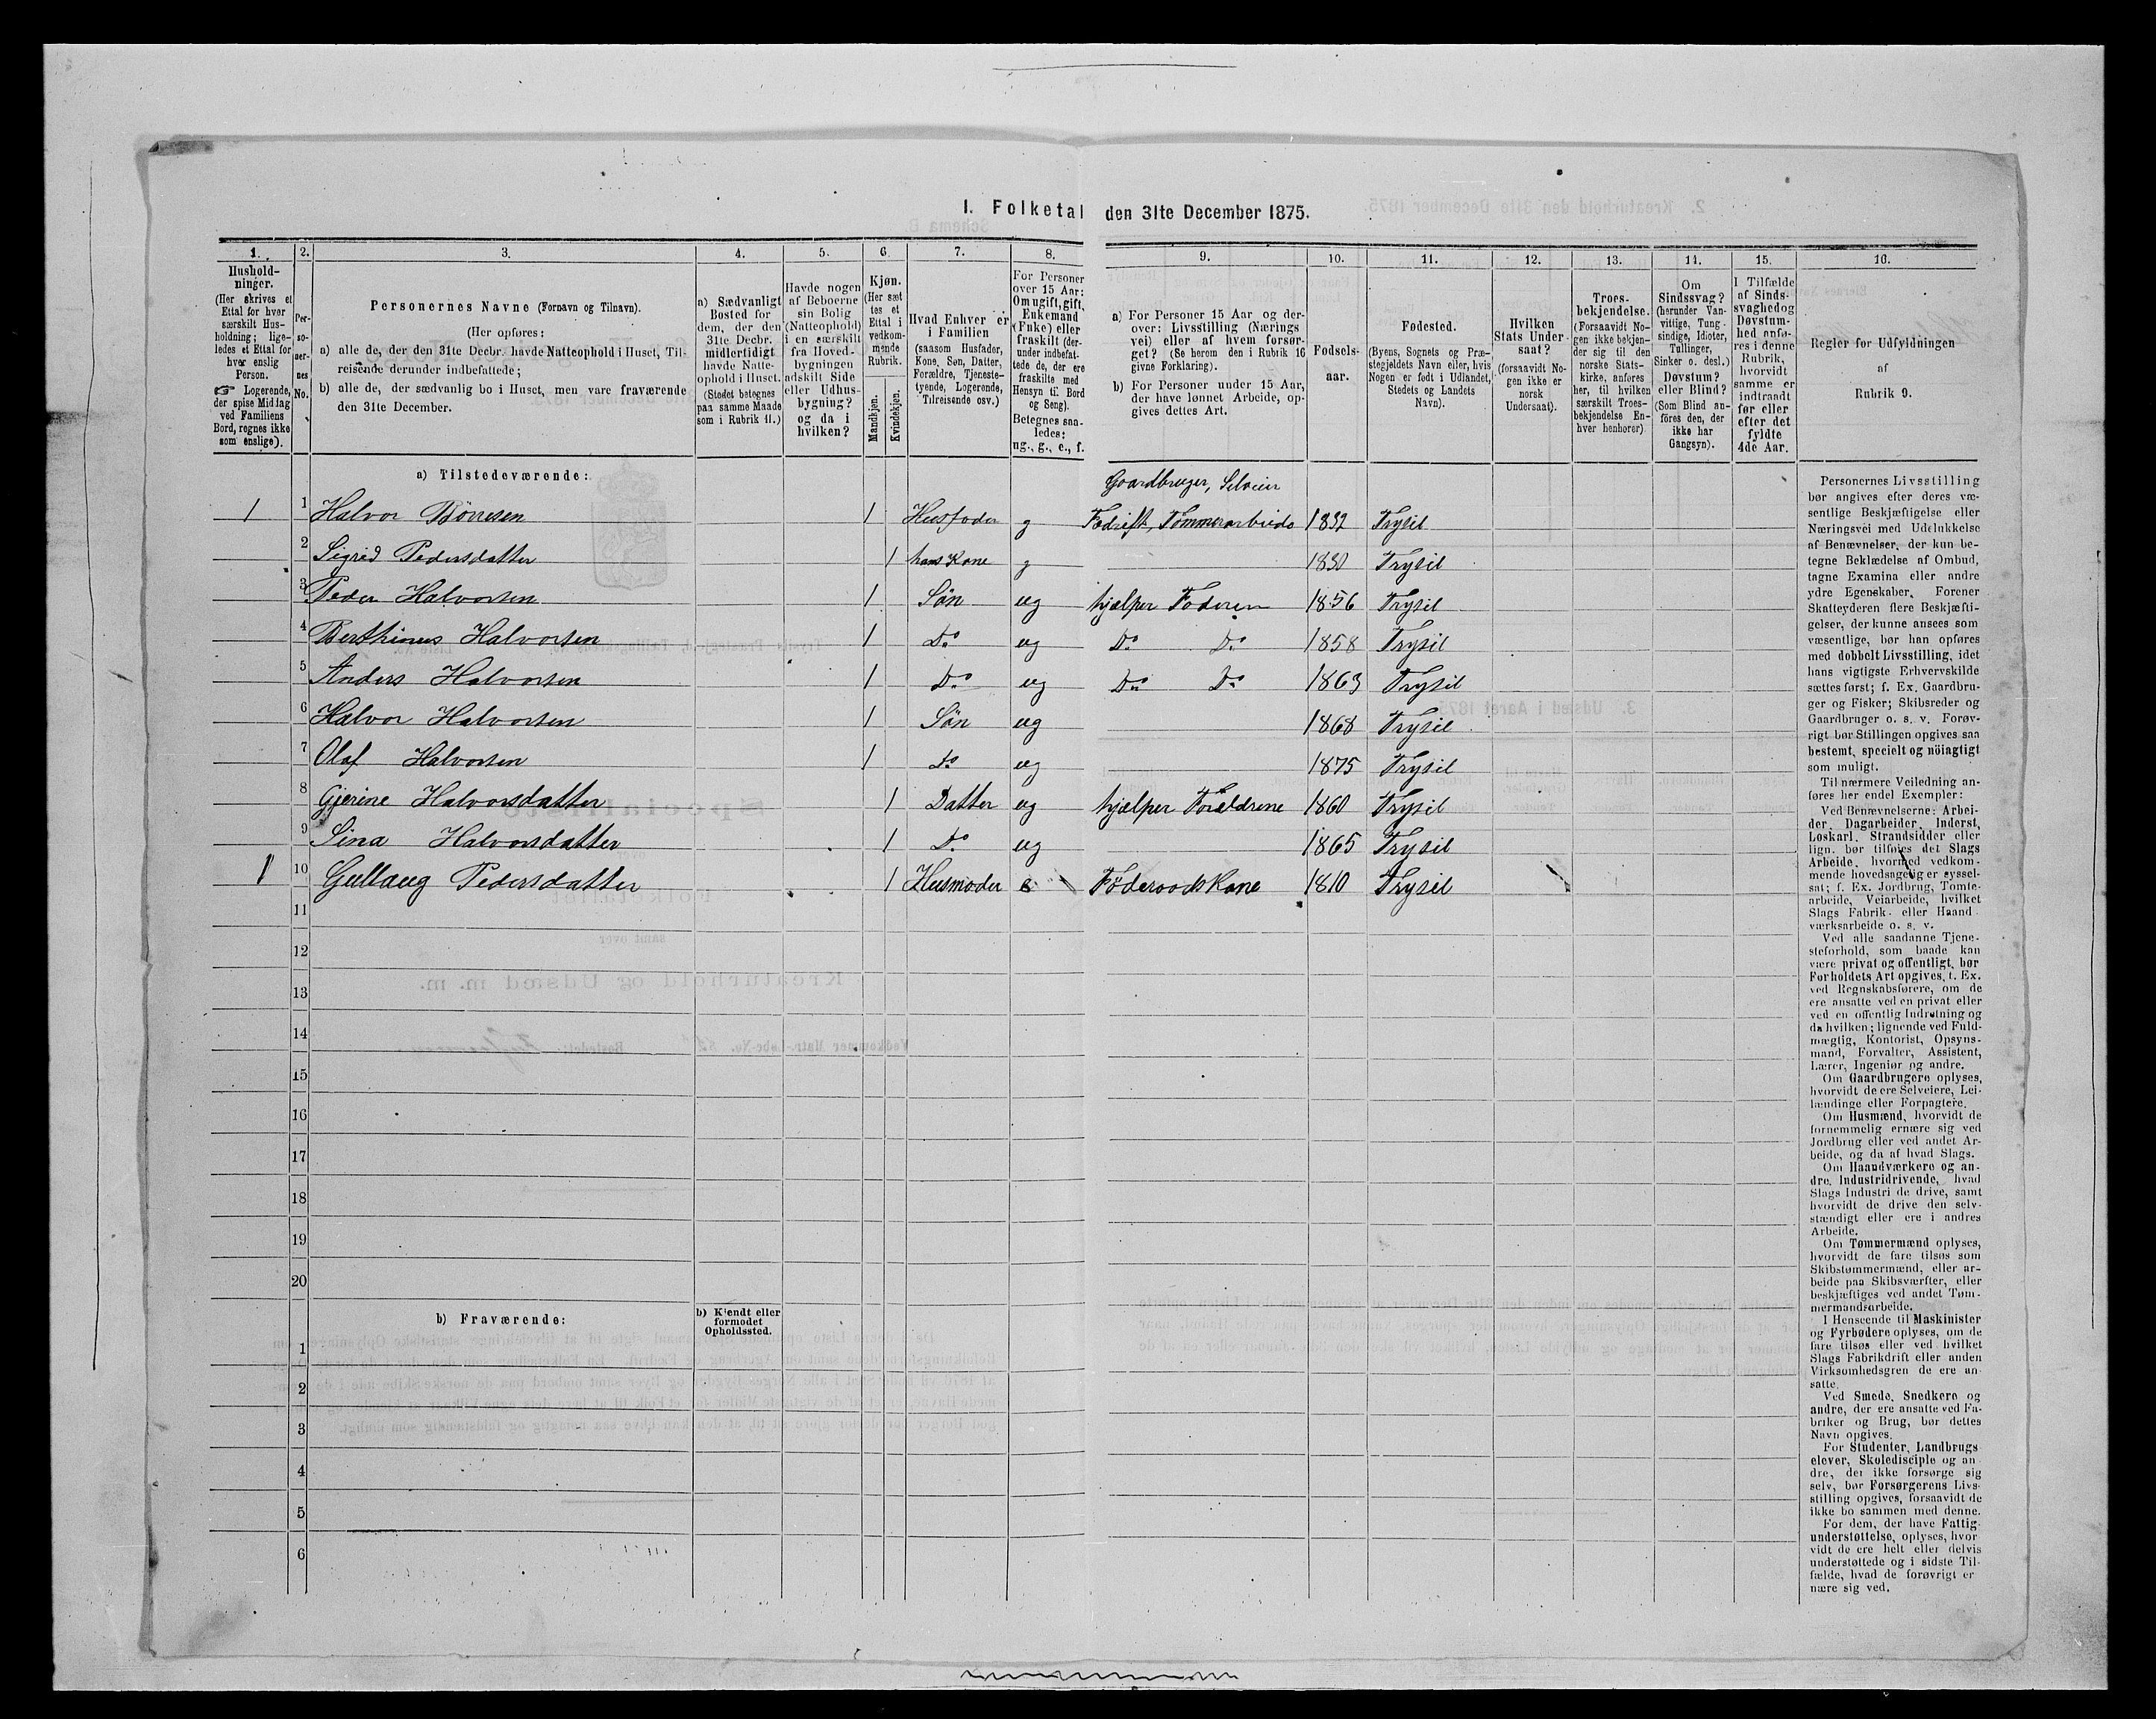 1. Folketal den 31te December 1875.
1. 2. 3. 4. 5. 6. 7. 8. 9. 10. 11. 12. 13. 14. 15. 16.
Hushold-
ninger.
(Her skrives et
Ettal for hver
særskilt Hus-
holdning; lige-
ledes et Ettal for
hver enslig
Person.
☞ Logerende,
der spise Middag
ved Familiens
Bord, regnes ikke
som enslige).
Per-
so-
ner-
nes
No.
Personernes Navne (Fornavn og Tilnavn).
(Her opføres:
a) alle de, der den 31te Decbr. havde Natteophold i Huset, Til-
reisende derunder indbefattede;
b) alle de, der sædvanlig bo i Huset, men vare fraværende
den 31te December.
a) Sædvanligt
Bosted for
dem, der den
31te Decbr.
midlertidigt
havde Natte-
ophold i Huset.
(Stedet betegnes
paa samme Maade
som i Rubrik 11.)
Havde nogen
af Beboerne
sin Bolig
(Natteophold)
i en særskilt
fra Hoved-
bygningen
adskilt Side
eller Udhus-
bygning?
og da i
hvilken?
Kjøn.
(Her sæt
tes et
Ettal i
vedkom-
mende
Rubrik.
Mandkjøn.
Kvindekjøn.
Hvad Enhver er
i Familien
(saasom Husfader,
Kone, Søn, Datter,
Forældre, Tjeneste-
tyende, Logerende,
Tilreisende osv.)
For Personer
over 15 Aar:
Om ugift, gift,
Enkemand
(Enke) eller
fraskilt (der-
under indbefat-
tede de, der ere
fraskilte med
Hensyn til Bord
og Seng).
Betegnes saa-
ledes:
ug., g., e., f.
a) For Personer 15 Aar og der-
over: Livsstilling (Nærings
vei) eller af hvem forsør-
get? (Se herom den i Rubrik 16
givne Forklaring).
b) For Personer under 15 Aar,
der have lønnet Arbeide, op-
gives dettes Art.
Fødsels-
aar.
Fødested.
(Byens, Sognets og Præ-
stegjeldets Navn eller, hvis
Nogen er født i Udlandet,
Stedets og Landets
Navn).
Hvilken
Stats Under
saat?
(forsaavidt No-
gen ikke er
norsk
Undersaat).
Troes-
bekjendelse.
(Forsaavidt No-
gen ikke bekjen-
der sig til den
norske Stats-
kirke, anføres
her, til hvilken
særskilt Troes-
bekjendelse En-
hver henhører)
Om
Sindssvag?
(herunder Van-
vittige, Tung-
sindige, Idioter,
Tullinger,
Sinker o. desl.)
Døvstum?
eller Blind?
(Som Blind an-
føres den, der
ikke har
Gangsyn).
I Tilfælde
af Sinds-
svaghed og
Døvstum-
hed anfø-
res i denne
Rubrik,
hvorvidt
samme er
indtraadt
før eller
efter det
fyldte
4de Aar.
Regler for Udfyldningen
af
Rubrik 9.
a) Tilstedeværende:
Gaardbruger, Selveier
1 1 Halvor Börresen 1 Husfader g Fædrift, Tømmerarbeide 1832 Trysil
2 Sigrid Pedersdatter 1 hans Kone g 1830 Trysil
3 Peder Halvorsen 1 Sön ug hjælper Faderen 1856 Trysil
4 Berthinus Halvorsen 1 Do ug Do Do 1858 Trysil
5 Anders Halvorsen 1 Do ug Do Do 1863 Trysil
6 Halvor Halvorsen 1 Sön ug 1868 Trysil
7 Olaf Halvorsen 1 do ug 1875 Trysil
8 Gjerine Halvorsdatter 1 Datter ug hjælper Forældrene 1860 Trysil
9 Sina Halvorsdatter 1 Do ug 1865 Trysil
1 10 Gullaug Pedersdatter 1 Husmoder e Föderaadskone 1810 Trysil
11
12
13
14
15
16
17
18
19
20
b) Fraværende:
b) Kjendt eller
formodet
Opholdssted.
1
2
3
4
5
6
Personernes Livsstilling
bør angives efter deres væ-
sentlige Beskjæftigelse eller
Næringsvei med Udelukkelse
af Benævnelser, der kun be-
tegne Beklædelse af Ombud,
tagne Examina eller andre
ydre Egenskaber. Forener
Skatteyderen flere Beskjæfti-
gelser, der kunne ansees som
væsentlige, bør han opføres
med dobbelt Livsstilling, idet
hans vigtigste Erhvervskilde
sættes først; f. Ex. Gaardbru-
ger og Fisker; Skibsreder og
Gaardbruger o. s. v. Forøv-
rigt bør Stillingen opgives saa
bestemt, specielt og nöiagtigt
som muligt.
Til nærmere Veiledning an-
føres her endel Exempler:
Ved Benævnelserne: Arbei-
der, Dagarbeider, Inderst,
Løskarl, Strandsidder eller
lign. bør tilføies det Slags
Arbeide, hvormed vedkom-
mende hovedsagelig er syssel-
sat; f. Ex. Jordbrug, Tomte-
arbeide, Veiarbeide, hvilket
Slags Fabrik- eller Haand-
værksarbeide o. s. v.
Ved alle saadanne Tjene-
steforhold, som baade kan
være privat og offentligt, bør
Forholdets Art opgives, f. Ex.
ved Regnskabsførere, om de
ere ansatte ved en privat eller
ved en offentlig Indretning og
da hvilken; lignende ved Fuld-
mægtig, Kontorist, Opsyns-
mand, Forvalter, Assistent,
Lærer, Ingeniør og andre.
Om Gaardbrugere oplyses,
hvorvidt de ere Selveiere, Lei-
lændinge eller Forpagtere.
Om Husmænd, hvorvidt de
fornemmelig ernære sig ved
Jordbrug eller ved andet Ar-
beide, og da af hvad Slags.
Om Haandværkere og an-
dre Industridrivende, hvad
Slags Industri de drive, samt
hvorvidt de drive den selv-
stændigt eller ere i andres
Arbeide.
Om Tømmermænd oplyses,
hvorvidt de fare tilsøs som
Skibstømmermænd, eller ar-
beide paa Skibsværfter, eller
beskjæftiges ved andet Tøm-
mermandsarbeide.
I Henseende til Maskinister
og Fyrbødere oplyses, om de
fare tilsøs eller ved hvilket
Slags Fabrikdrift eller anden
Virksomhedsgren de ere an-
satte.
Ved Smede, Snedkere og
andre, der ere ansatte ved Fa-
briker og Brug, bør dettes
Navn opgives.
For Studenter, Landbrugs
elever, Skoledisciple og an
dre, der ikke forsørge sig
selv, bør Forsørgerens Livs-
stilling opgives, forsaavidt de
ikke bo sammen med denne.
For dem, der have Fattig-
understøttelse, oplyses, hvor
vidt de ere helt eller delvis
understøttede og i sidste Til-
fælde, hvad de forøvrigt er
nære sig ved.